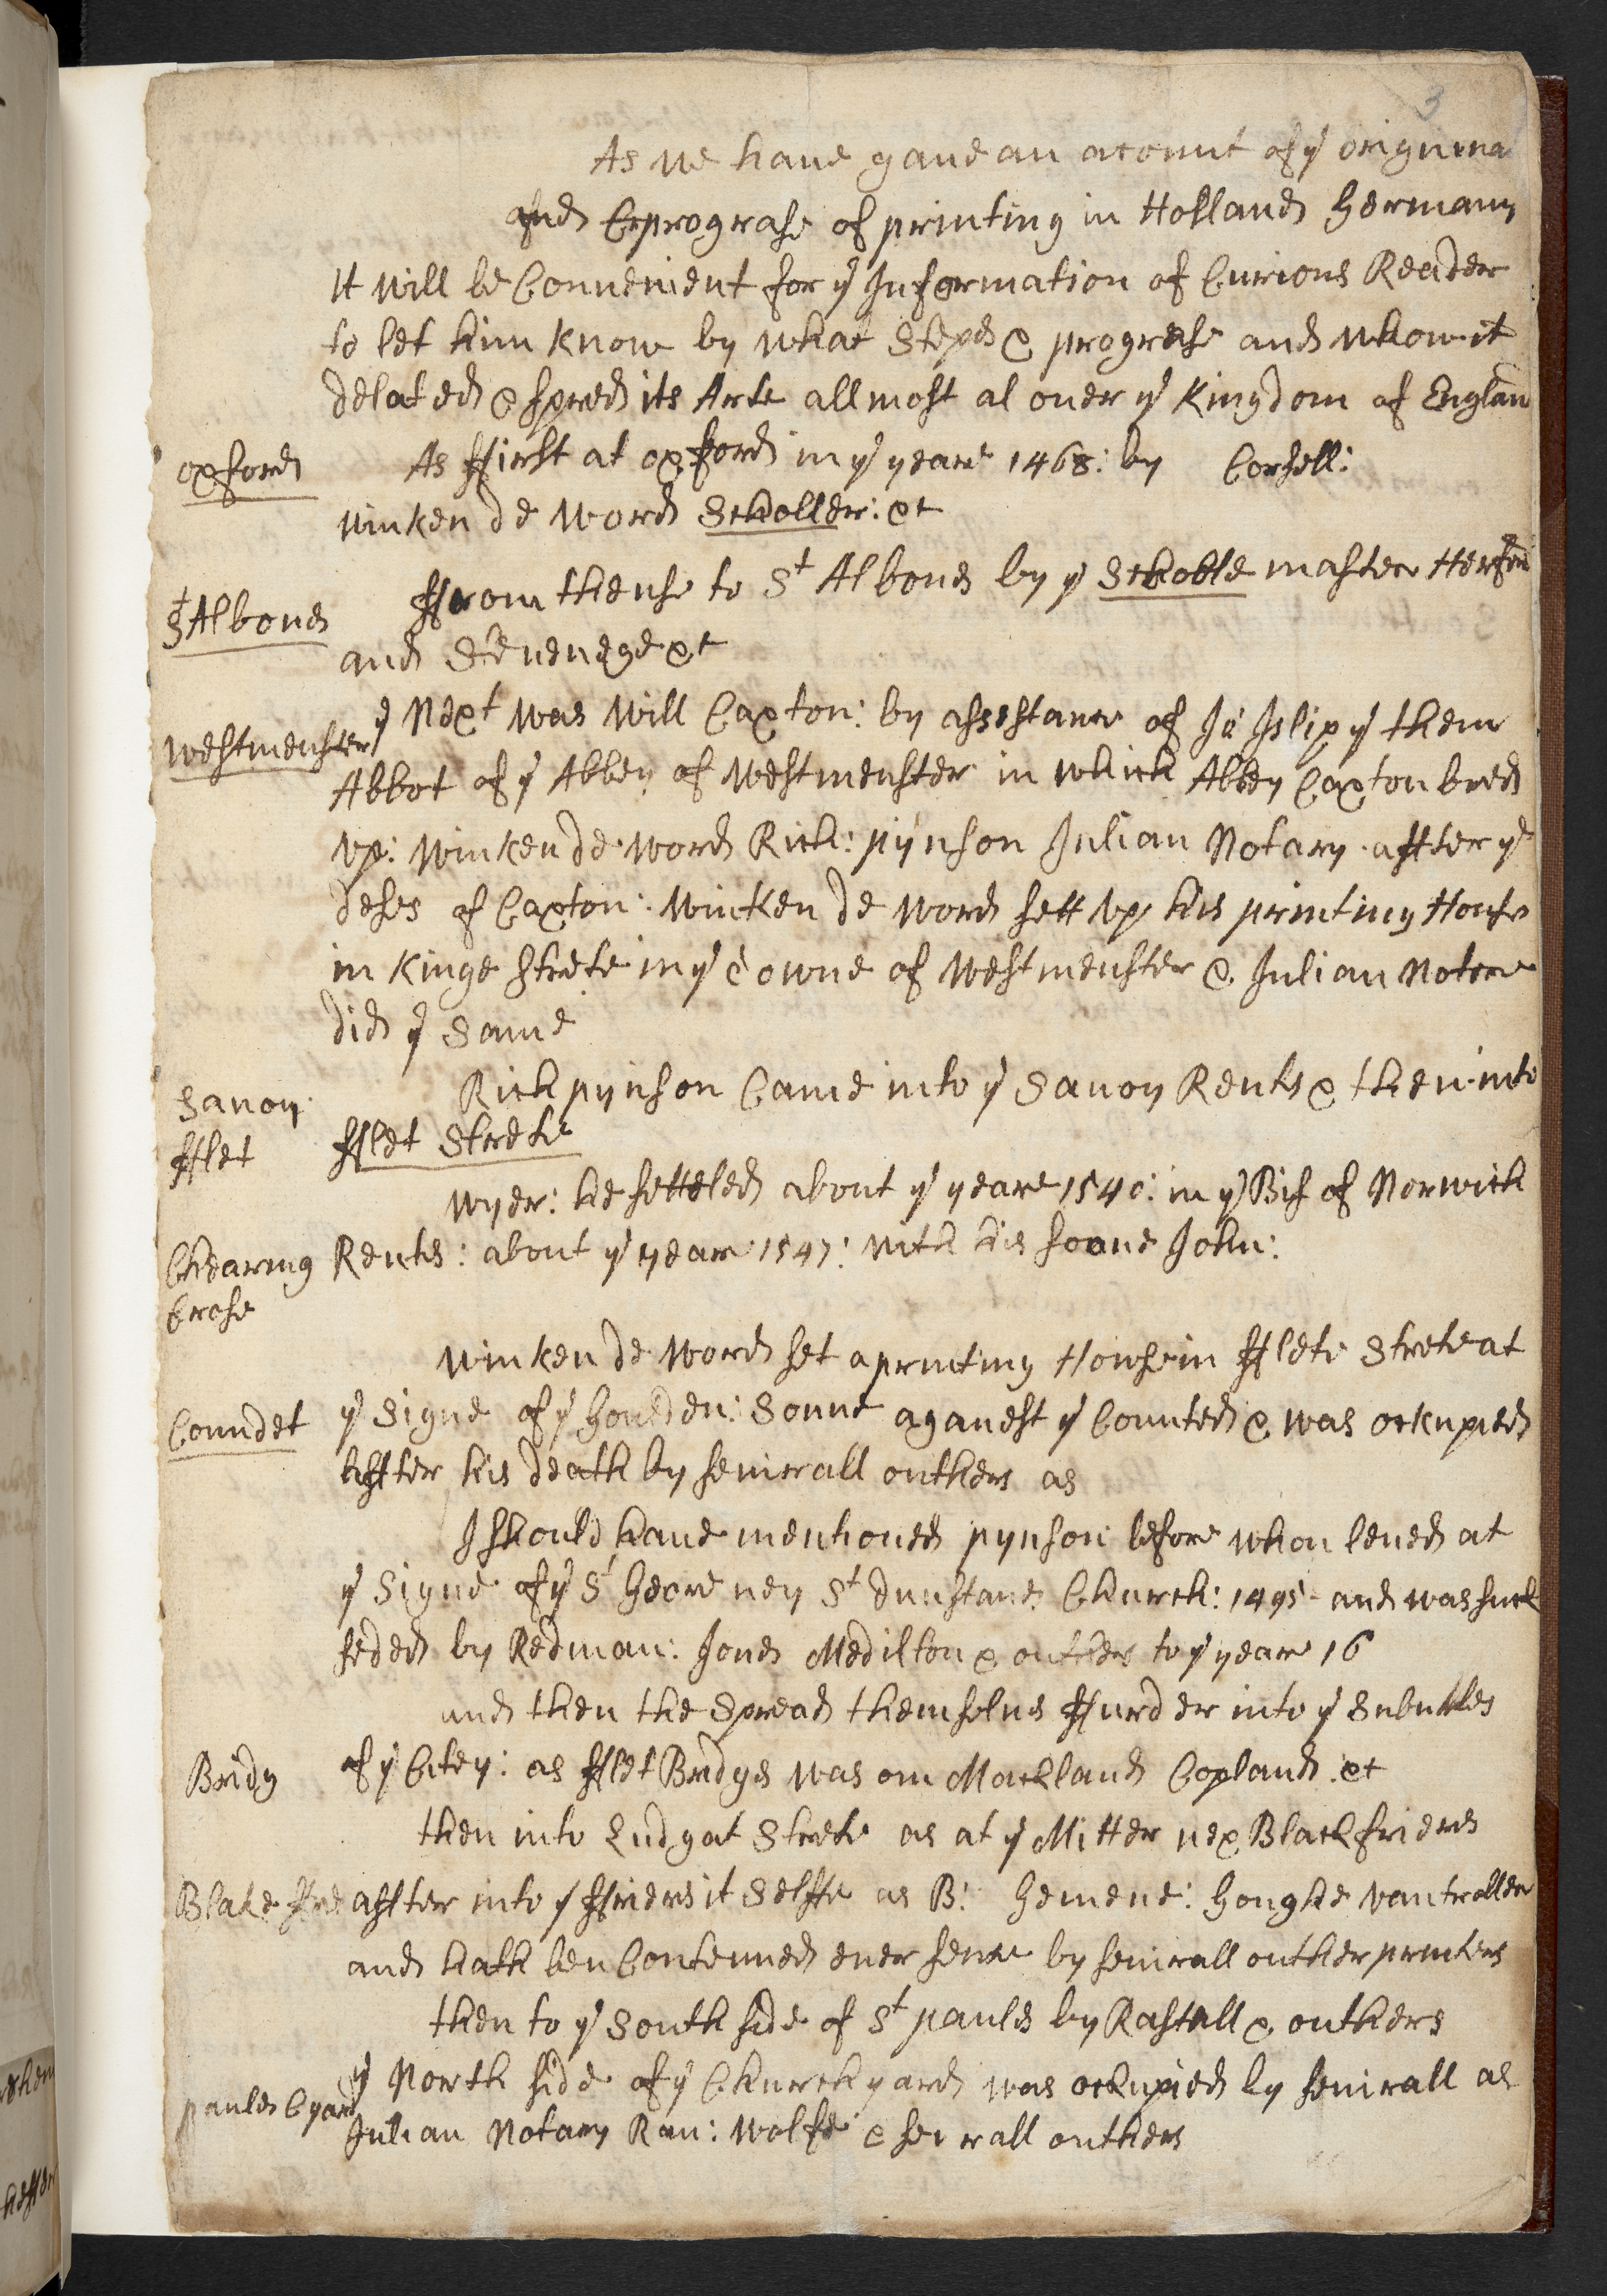 3
As we haue gaue an acount of yᵉ origin ina
and & prograse of printing in Holland Germany
It will be Conuenient for yᵉ Information of Curious Reader
to let him know by what Steps & progrese and whow it
delated & spred its Arte allmost al ouer yᵉ Kingdom of Englan
oxford
As ffirst at oxford in yᵉ yeare 1468: by Corsell:
winken de word Scholler: et
Sᵗ Albons
ffrom thense to Sᵗ Albons by yᵉ Schoole master
and et
westmenster
yᵉ Next was will Caxton: by assistance of Jo Islip yᵉ then
Abbot of yᵉ Abbey of westmenster in which Abbey Caxton bred
vp: winken de word Rich: pynson Julian Notary after yᵉ
deses of Caxton: winken de word sett vp his printing House
in Kinge strete in yᵉ towne of westmenster & Julian Notree
did yᵉ same
Sauoy
Rich pynson Came into yᵉ Sauoy Rents & then into
fflet
fflet Strete
wyer: he setteled about yᵉ yeare 1540: in yᵉ Bis of Norwich
Chearing
Rents: about yᵉ yeare 1547: with his soone John:
Crose
winken de word set a printing Howse in fflete Strete at
Coundet
yᵉ Signe of yᵉ Goulden: Sonne aganest yᵉ Counted & was ockupied
affter his death by seuirall outhers as
I should haue mentioned pynson before whou leued at
yᵉ Signe of yᵉ Sᵗ George ney Sᵗ dunstans Church: 1495 and was suck
seded by Redman: Jones Medilton & outhers to yᵉ yeare 16
and then the Spread themselus ffurder into yᵉ
Bridg
of yᵉ Citey: as fflet Bridges was on Copland et
then into Ludgat Strete as at yᵉ Mitter nex Blackfriers
Blake ffre
affter into yᵉ ffriers it selffe as B: Gemene: Goughe vantroller
and hath ben Contenned euer sence by seuirall outher printers
then to yᵉ South side of Sᵗ paules by Rastall & outhers
yᵉ North side of yᵉ Church yard was ockupied by seuirall as
paules Cyard
Julian Notary Ran: wolfe & seuirall outhers